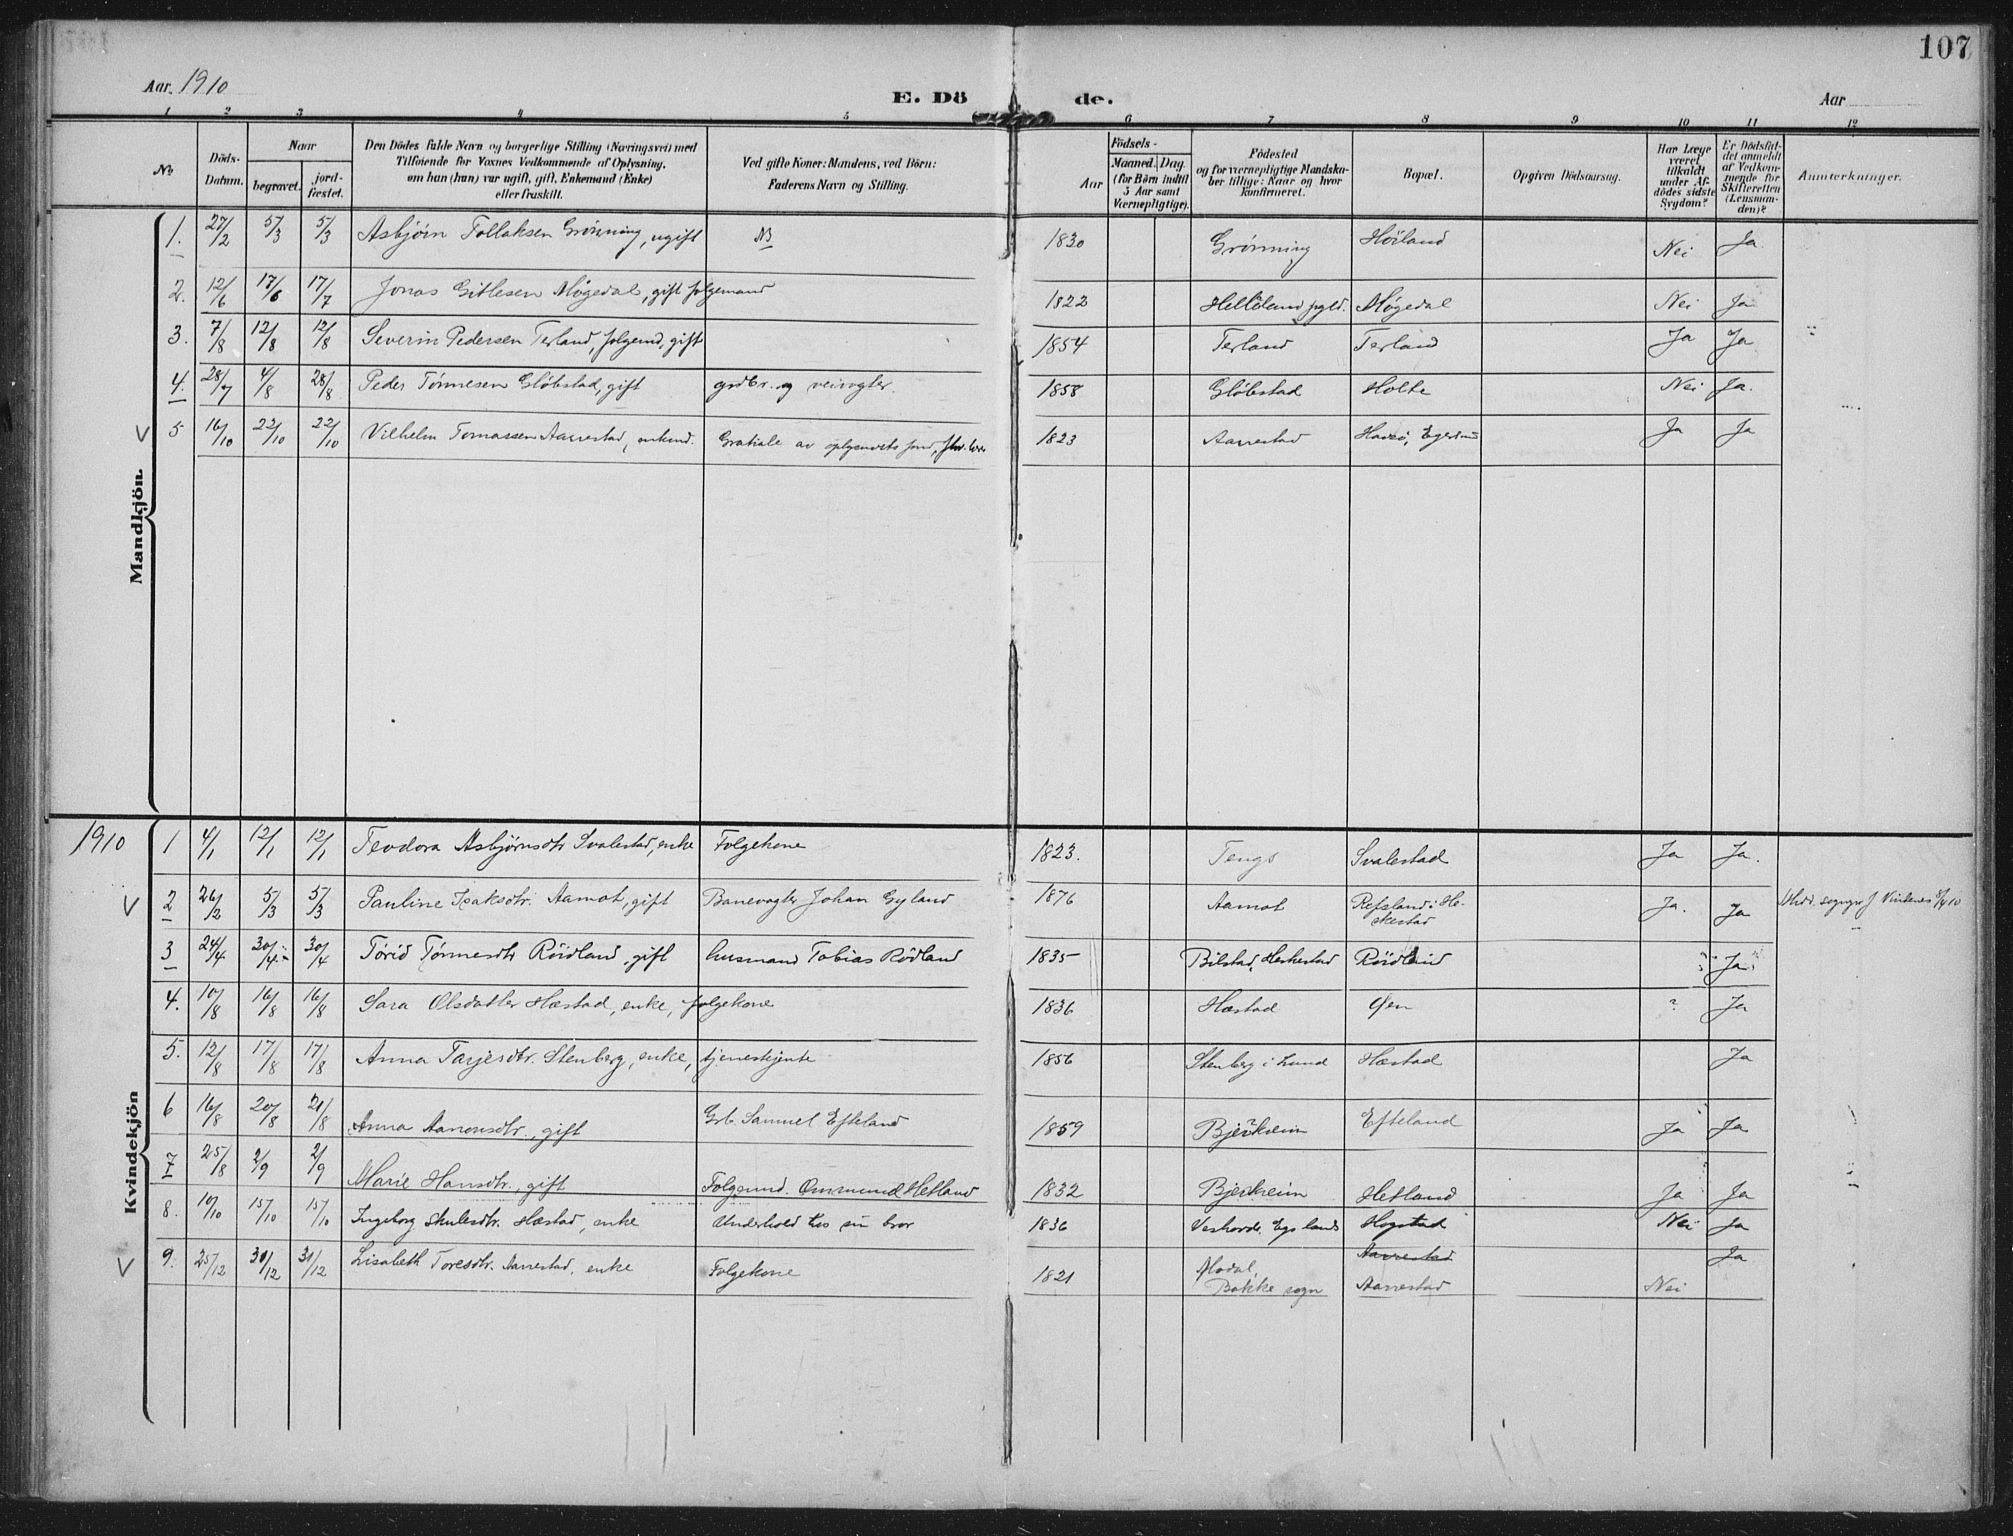 107
Aar 1910 E. Dö de. Aar
1 2 3 4 5 6 7 8 9 10 11 12
No Döds-Datum. Naar begravet. jord-fæstet. Den Dödes fulde Navn og borgerlige Stilling (Næringsvei) med Tilføiende for Voxnes Vedkommende af Oplysning, om han (hun) var ugift, gift, Enkemand (Enke) eller fraskilt. Ved gifte Koner: Mandens, ved Börn: Faderens Navn og Stilling. Födsels- Aar Maaned. Dag. (for Börn indtil 5 Aar samt Værnepligtige). Födested og for værnepligtige Mandskaber tillige: Naar og hvor konfirmeret. Bopæl. Opgiven Dödsaarsag. Har Læge været tilkaldt under Afdödes sidste Sygdom? Er Dödsfaldet anmeldt af Vedkommende for Skifteretten (Lensmanden)? Anmærkninger.
Mandkjön.
1. 27/2 5/3 5/3 Asbjörn Tollaksen Grönning, ugift 1830 Grönning Höiland Nei Ja
2. 12/6 17/6 17/7 Jonas Gitlesen Møgedal, gift folgemand 1822 Helleland pgld. Møgedal Nei Ja
3. 7/8 12/8 12/8 Severin Pedersen Terland, folgemd, gift 1854 Terland Terland Ja Ja
4. 28/7 4/8 28/8 Peder Tönnesen Glöbstad, gift grdbr. og veivogter 1858 Glöbstad Holte Nei Ja.
5 16/10 22/10 22/10 Vilhelm Tomassen Aarrestad, enkemd. Gratiale av oplysnvets fond, 1823 Aarrestad Egersund Ja Ja
1910
Kvindekjön
1 4/1 12/1 12/1 Teodora Asbjørnsdtr Svalestad, enke Folgekone 1823. Tengs Svalestad Ja Ja.
2 26/2 5/3 5/3 Pauline Isaksdtr. Aamot, gift Banevogter Johan Gyland 1876 Aamot Refsland i Heskestad Ja. Ja
3 24/4 30/4 30/4 Törid Tönnesdtr Röidland, gift husmand Tobias Rödland 1835 Bilstad, Heskestad Röidland Ja
4. 10/8 16/8 16/8 Sara Olsdatter Hæstad, enke, folgekone 1836 Hæstad Øen ? Ja
5. 12/8 17/8 17/8 Anna Tarjesdtr. Stenberg, enke, tjenestejente 1856 Stenberg i Lund Hæstad Ja
6 16/8 20/8 21/8 Anna Aanonsdtr., gift Grb. Samuel Efteland 1859 Bjerkreim Efteland Ja Ja
7 25/8 2/9 2/9 Marie Hansdtr., gift Folgemd. Ommund Hetland 1832 Bjerkreim Hetland Ja Ja
8. 10/10 15/10 15/10 Ingeborg Skulesdtr. Hæstad, enke Underhold hos sin bror 1836 Egelands Nei Ja
9. 25/12 31/12 31/12 Lisabeth Toresdtr. Aarrestad, enke Folgekone 1821 Modal, Bakke sogn Aarrestad Aarrestad Nei Ja